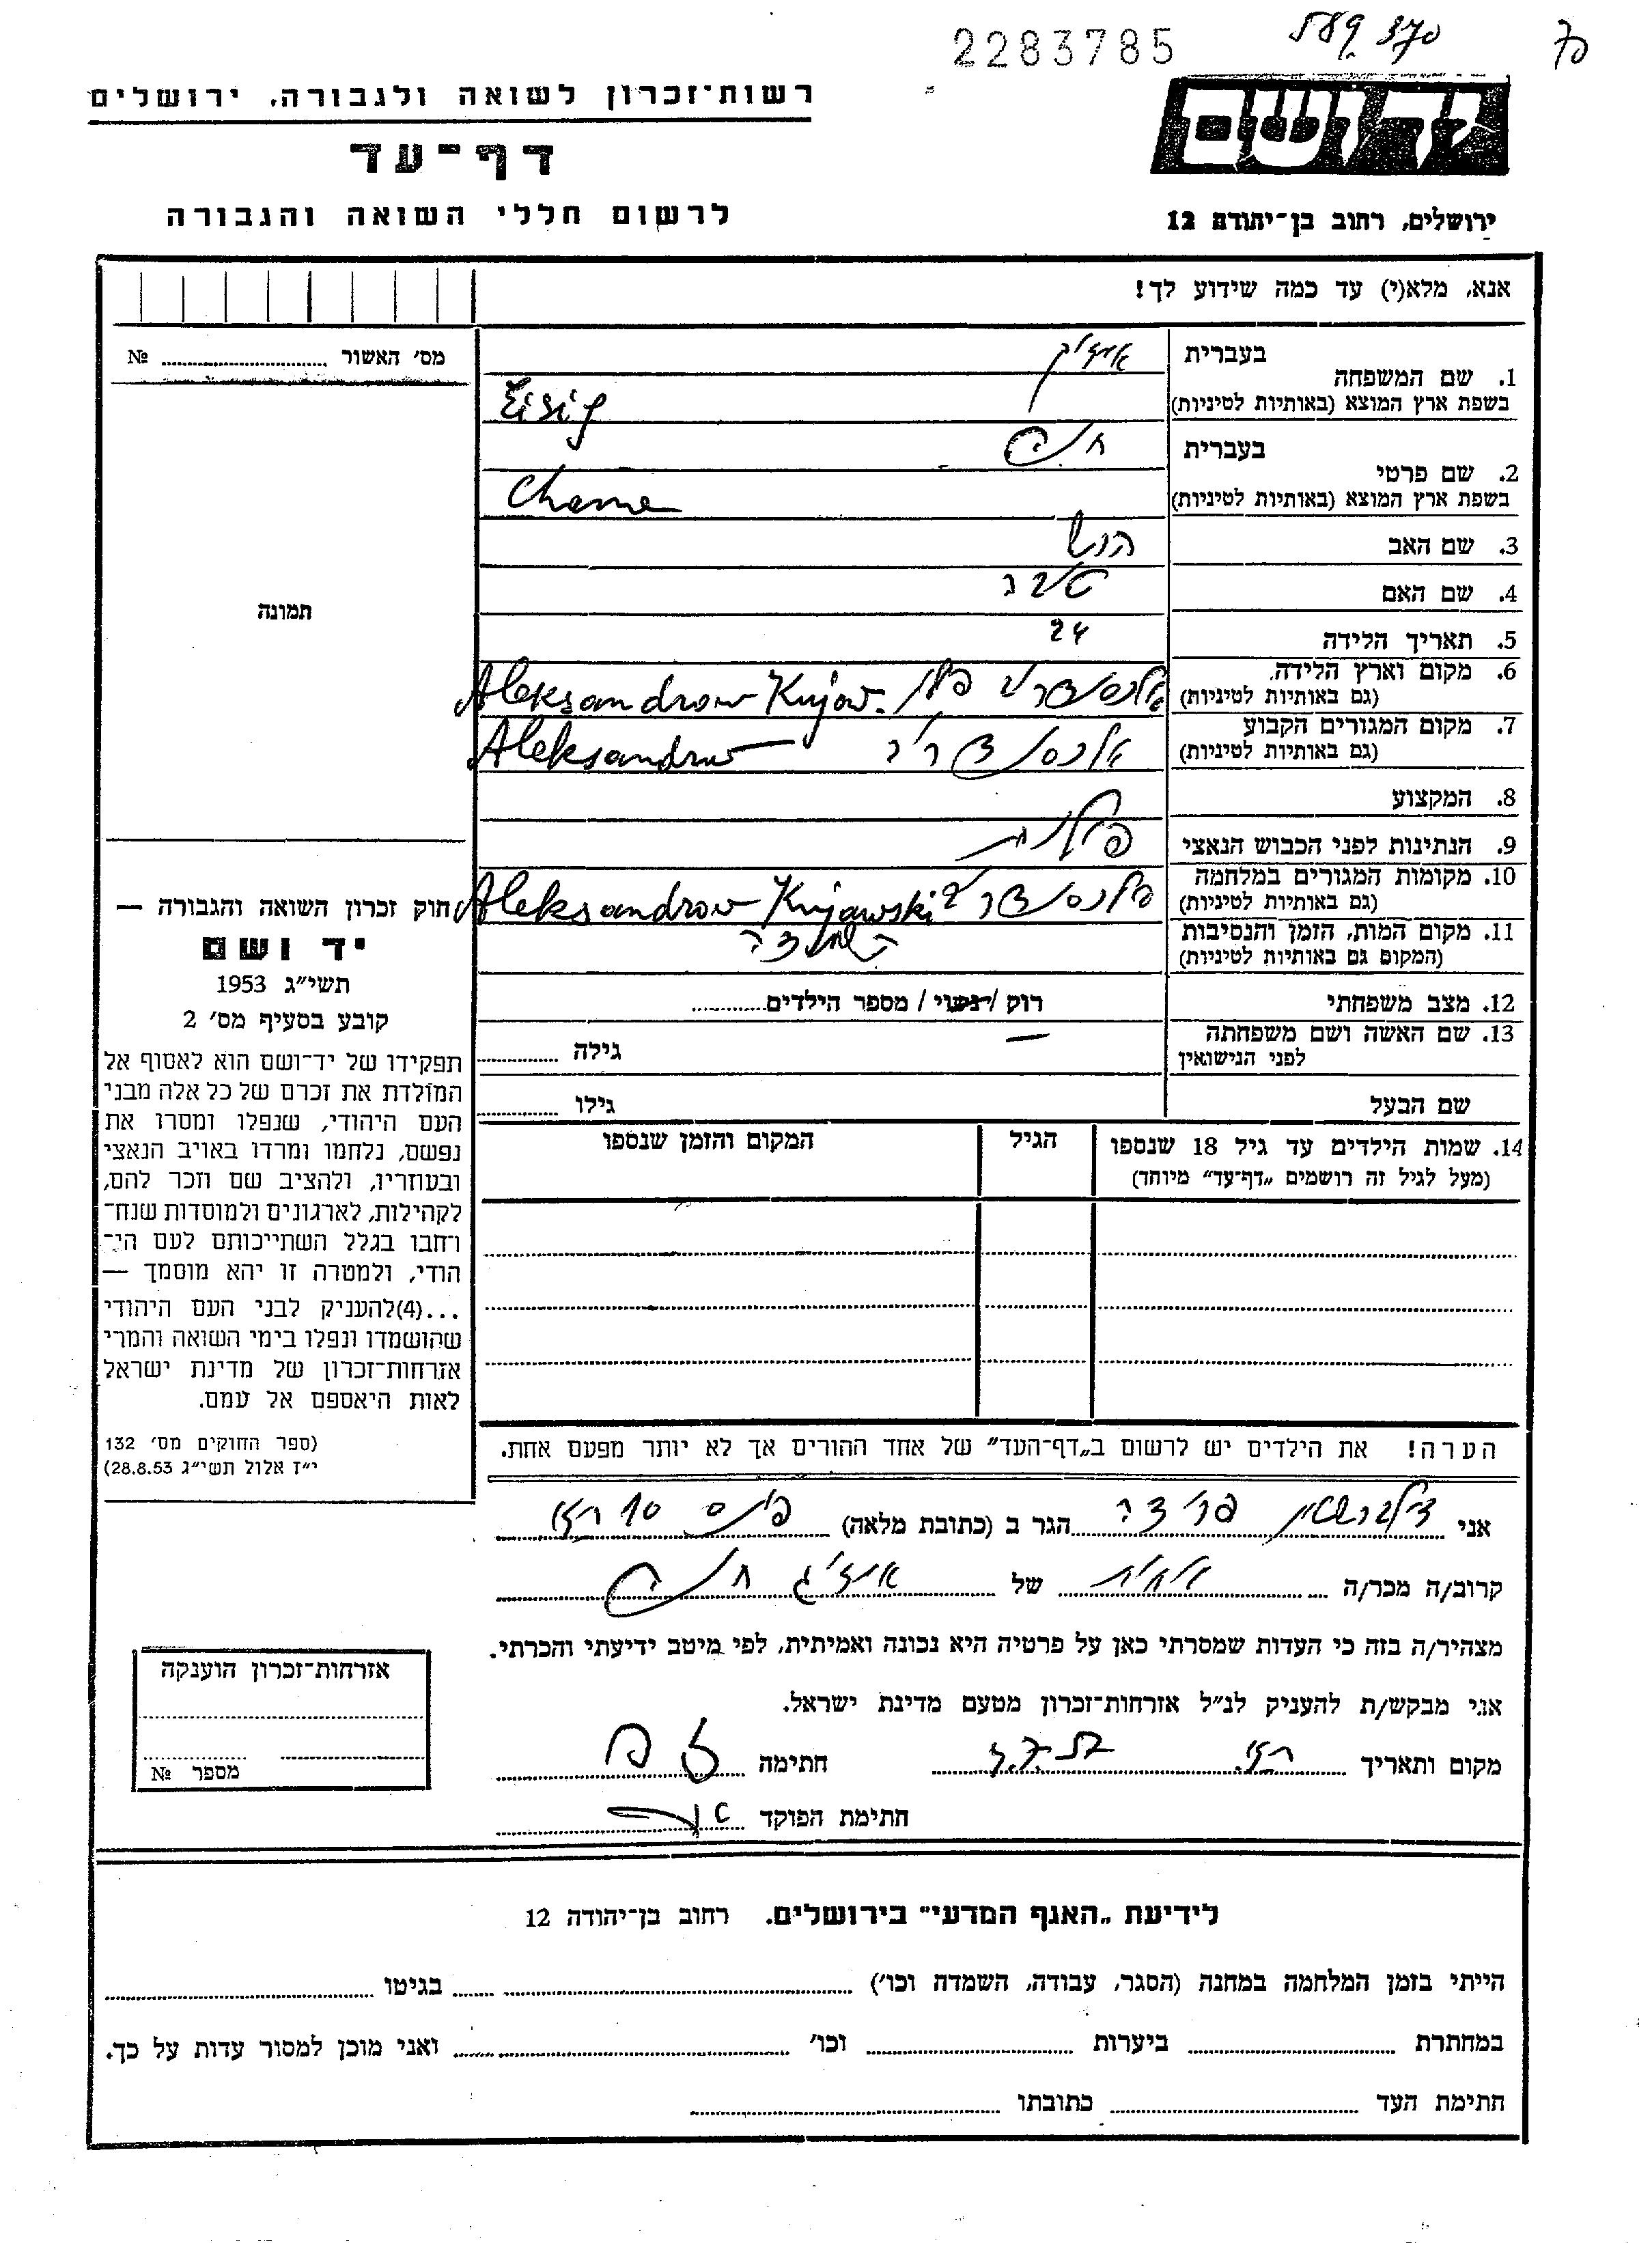 2283785
589 370
70
רשות־זכרון לשואה ולגבורה, ירושלים
ידושם
דף־עד
לרשום חללי השואה והגבורה
ירושלים, רחוב בן־יהודה 12
אנא, מלא(י) עד כמה שידוע לך!
מס׳ האשור ........ №
תמונה
1. שם המשפחה
בעברית
בשפת ארץ המוצא (באותיות לטיניות)
Eisig
2. שם פרטי
בעברית
בשפת ארץ המוצא (באותיות לטיניות)
3. שם האב
הרש
4. שם האם
5. תאריך הלידה
24
6. מקום וארץ הלידה
(גם באותיות לטיניות)
Aleksandrow Kujaw.
7. מקום המגורים הקבוע
(גם באותיות לטיניות)
Aleksandrow
8. המקצוע
9. הנתינות לפני הכבוש הנאצי
פולנית
10. מקומות המגורים במלחמה
(גם באותיות לטיניות)
Aleksandrow Kujawski
11. מקום המות, הזמן והנסיבות
(המקום גם באותיות לטיניות)
השמדה
12. מצב משפחתי
רוק / נשוי / מספר הילדים........
13. שם האשה ושם משפחתה
לפני הנישואין
—
גילה ........
שם הבעל
גילו ........
14. שמות הילדים עד גיל 18 שנספו
(מעל לגיל זה רושמים „דף־עד״ מיוחד)
הגיל
המקום והזמן שנספו
חוק זכרון השואה והגבורה —
יד ושם
תשי״ג 1953
קובע בסעיף מס׳ 2
תפקידו של יד־ושם הוא לאסוף אל
המולדת את זכרם של כל אלה מבני
העם היהודי, שנפלו ומסרו את
נפשם, נלחמו ומרדו באויב הנאצי
ובעוזריו, ולהציב שם וזכר להם,
לקהילות, לארגונים ולמוסדות שנח־
רחבו בגלל השתייכותם לעם הי־
הודי, ולמטרה זו יהא מוסמך —
...(4)להעניק לבני העם היהודי
שהושמדו ונפלו בימי השואה והמרי
אזרחות־זכרון של מדינת ישראל
לאות היאספם אל עמם.
(ספר החוקים מס׳ 132
י״ז אלול תשי״ג 28.8.53)
הערה! את הילדים יש לרשום ב„דף־העד״ של אחד ההורים אך לא יותר מפעם אחת.
אני זילברשטין פרידה הגר ב (כתובת מלאה)
קרוב/ה מכר/ה אחות של אייזיג חיים
מצהיר/ה בזה כי העדות שמסרתי כאן על פרטיה היא נכונה ואמיתית, לפי מיטב ידיעתי והכרתי.
אני מבקש/ת להעניק לנ״ל אזרחות־זכרון מטעם מדינת ישראל.
מקום ותאריך ........ חתימה ........
חתימת הפוקד ........
אזרחות־זכרון הוענקה
מספר №
לידיעת „האגף המדעי״ בירושלים. רחוב בן־יהודה 12
הייתי בזמן המלחמה במחנה (הסגר, עבודה, השמדה וכו׳) ........ בגיטו ........
במחתרת ........ ביערות ........ וכו׳ ........ ואני מוכן למסור עדות על כך.
חתימת העד ........ כתובתו ........